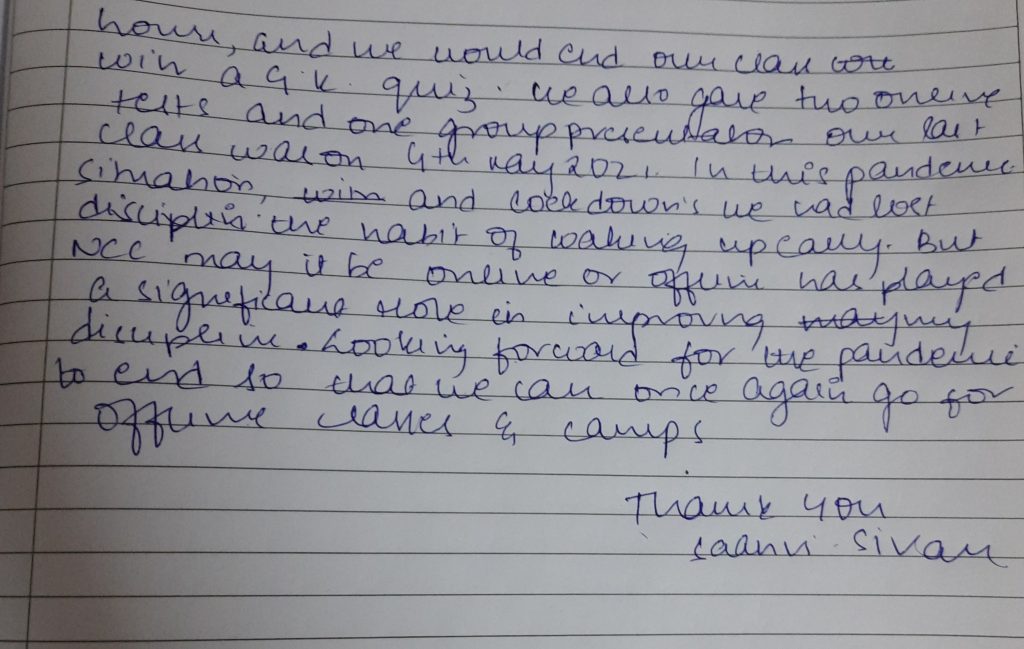 hours, and we would end our class
with a G.K. quiz. we also gave two online
tests and one group presentation our last
class was on 4th May 2021. In this pandemic
situation, with and lockdown's we had lost
discipline the habit of waking up early. But
NCC may it be online or offline has played
a significant role in improving my
discipline. Looking forward for the pandemic
to end so that we can once again go for
offline classes & camps
Thank you
Saanvi Sivan